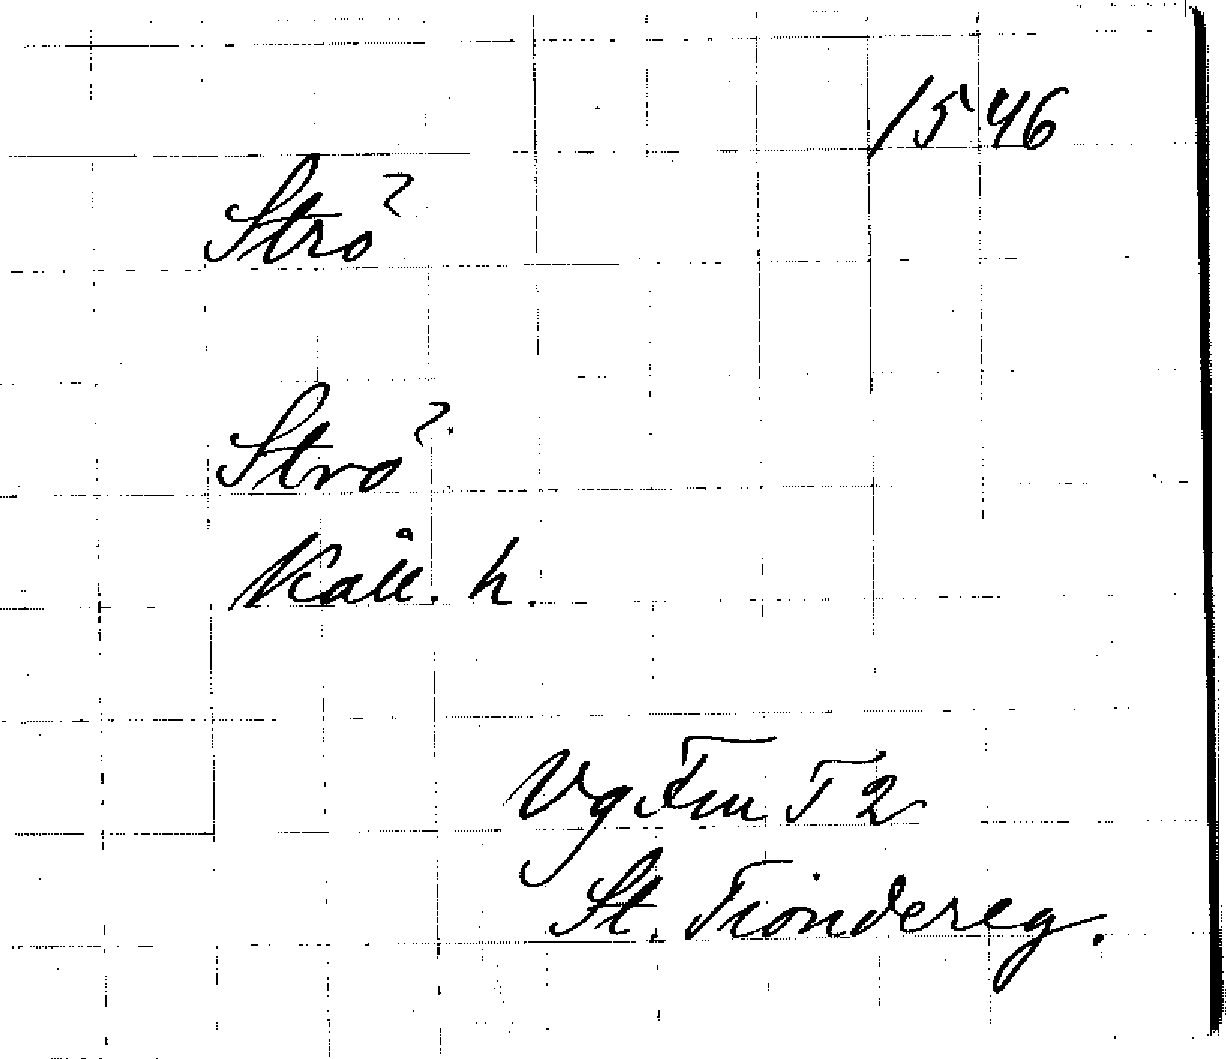 1546
Strö
Strö
Kåll. h.
Vg Fru T 2
St. Tiondereg.